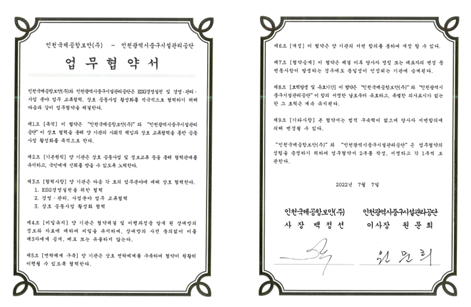 인천국제공항보안(주) - 인천광역시중구시설관리공단
업무협약서
인천국제공항보안(주)와 인천광역시중구시설관리공단은 ESG경영실천 및 경영·관리·
사업 분야 업무 교류협력, 상호 공동사업 활성화를 적극적으로 협력하기 위해
다음과 같이 업무협약을 체결한다.
제1조 [목적] 이 협약은 "인천국제공항보안(주)"와 "인천광역시중구시설관리공
단"이 상호 협력을 통해 양 기관의 사회적 책임과 상호 교류협력을 통한 공동
사업 활성화를 목적으로 한다.
제2조 [기본원칙] 양 기관은 상호 공동사업 및 정보교류 등을 통해 협력관계를
유지하고, 국민에게 신뢰를 받을 수 있도록 노력한다.
제3조 [협력사항] 양 기관은 다음 각 호의 업무분야에 대해 상호 협력한다.
1. ESG경영실천을 위한 협력
2. 경영·관리, 사업분야 업무 교류협력
3. 상호 공동사업 활성화 협력
제4조 [비밀유지] 양 기관은 협약체결 및 이행과정을 통해 상대방의
정보와 자료에 대하여 비밀을 유지하며, 상대방의 사전 동의없이 이를
제3자에게 공개, 배포 또는 유출하지 않는다.
제5조 [연락체계 구축] 양 기관은 상호 연락체계를 구축하여 협약이 원활히
이행될 수 있도록 협력한다.
제6조 [개정] 이 협약은 양 기관의 서면 합의를 통하여 개정 할 수 있다.
제7조 [협약승계] 이 협약은 체결 이후 당사자 명칭 또는 대표자의 변경 등
변동사항이 발생하는 경우에도 동일성이 인정되는 기관에 승계한다.
제8조 [효력발생 및 유효기간] 이 협약은 "인천국제공항보안(주)"와 "인천광역시
중구시설관리공단"이 합의 서명한 날로부터 유효하고, 특별한 의사표시가 없는
한 그 효력은 계속 유지된다.
제9조 [기타사항] 본 협약서는 법적 구속력이 없으며 당사자 서면합의에
의해 변경될 수 있다.
"인천국제공항보안(주)"와 "인천광역시중구시설관리공단"은 업무협약의
성립을 증명하기 위하여 업무협약서 2부를 작성, 서명하고 각 1부씩 보
관한다.
2022년 7월 7일
인천국제공항보안(주) 인천광역시중구시설관리공단
사장 백정선 이사장 원문희
원문희